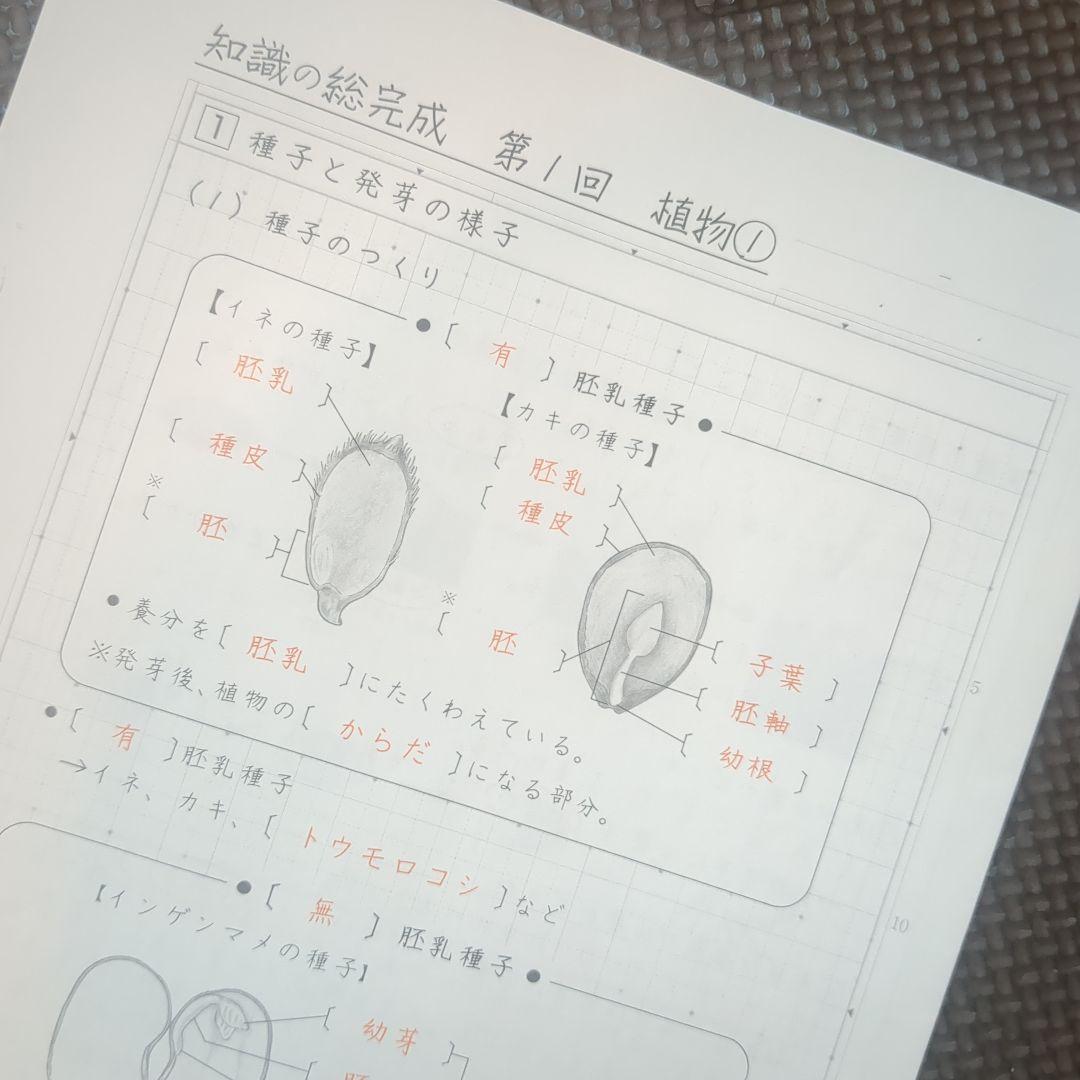 知識の総完成 第1回 植物①
1 種子と発芽の様子
(1) 種子のつくり
●〔 有 〕胚乳種子●
【イネの種子】
〔 胚乳 〕
〔 種皮 〕
※
〔 胚 〕
【カキの種子】
〔 胚乳 〕
〔 種皮 〕
※
〔 胚 〕
〔 子葉 〕
〔 胚軸 〕
〔 幼根 〕
●養分を〔 胚乳 〕にたくわえている。
※発芽後、植物の〔 からだ 〕になる部分。
●〔 有 〕胚乳種子
→イネ、カキ、〔 トウモロコシ 〕など
●〔 無 〕胚乳種子●
【インゲンマメの種子】
〔 幼芽 〕
〔 胚
5
10